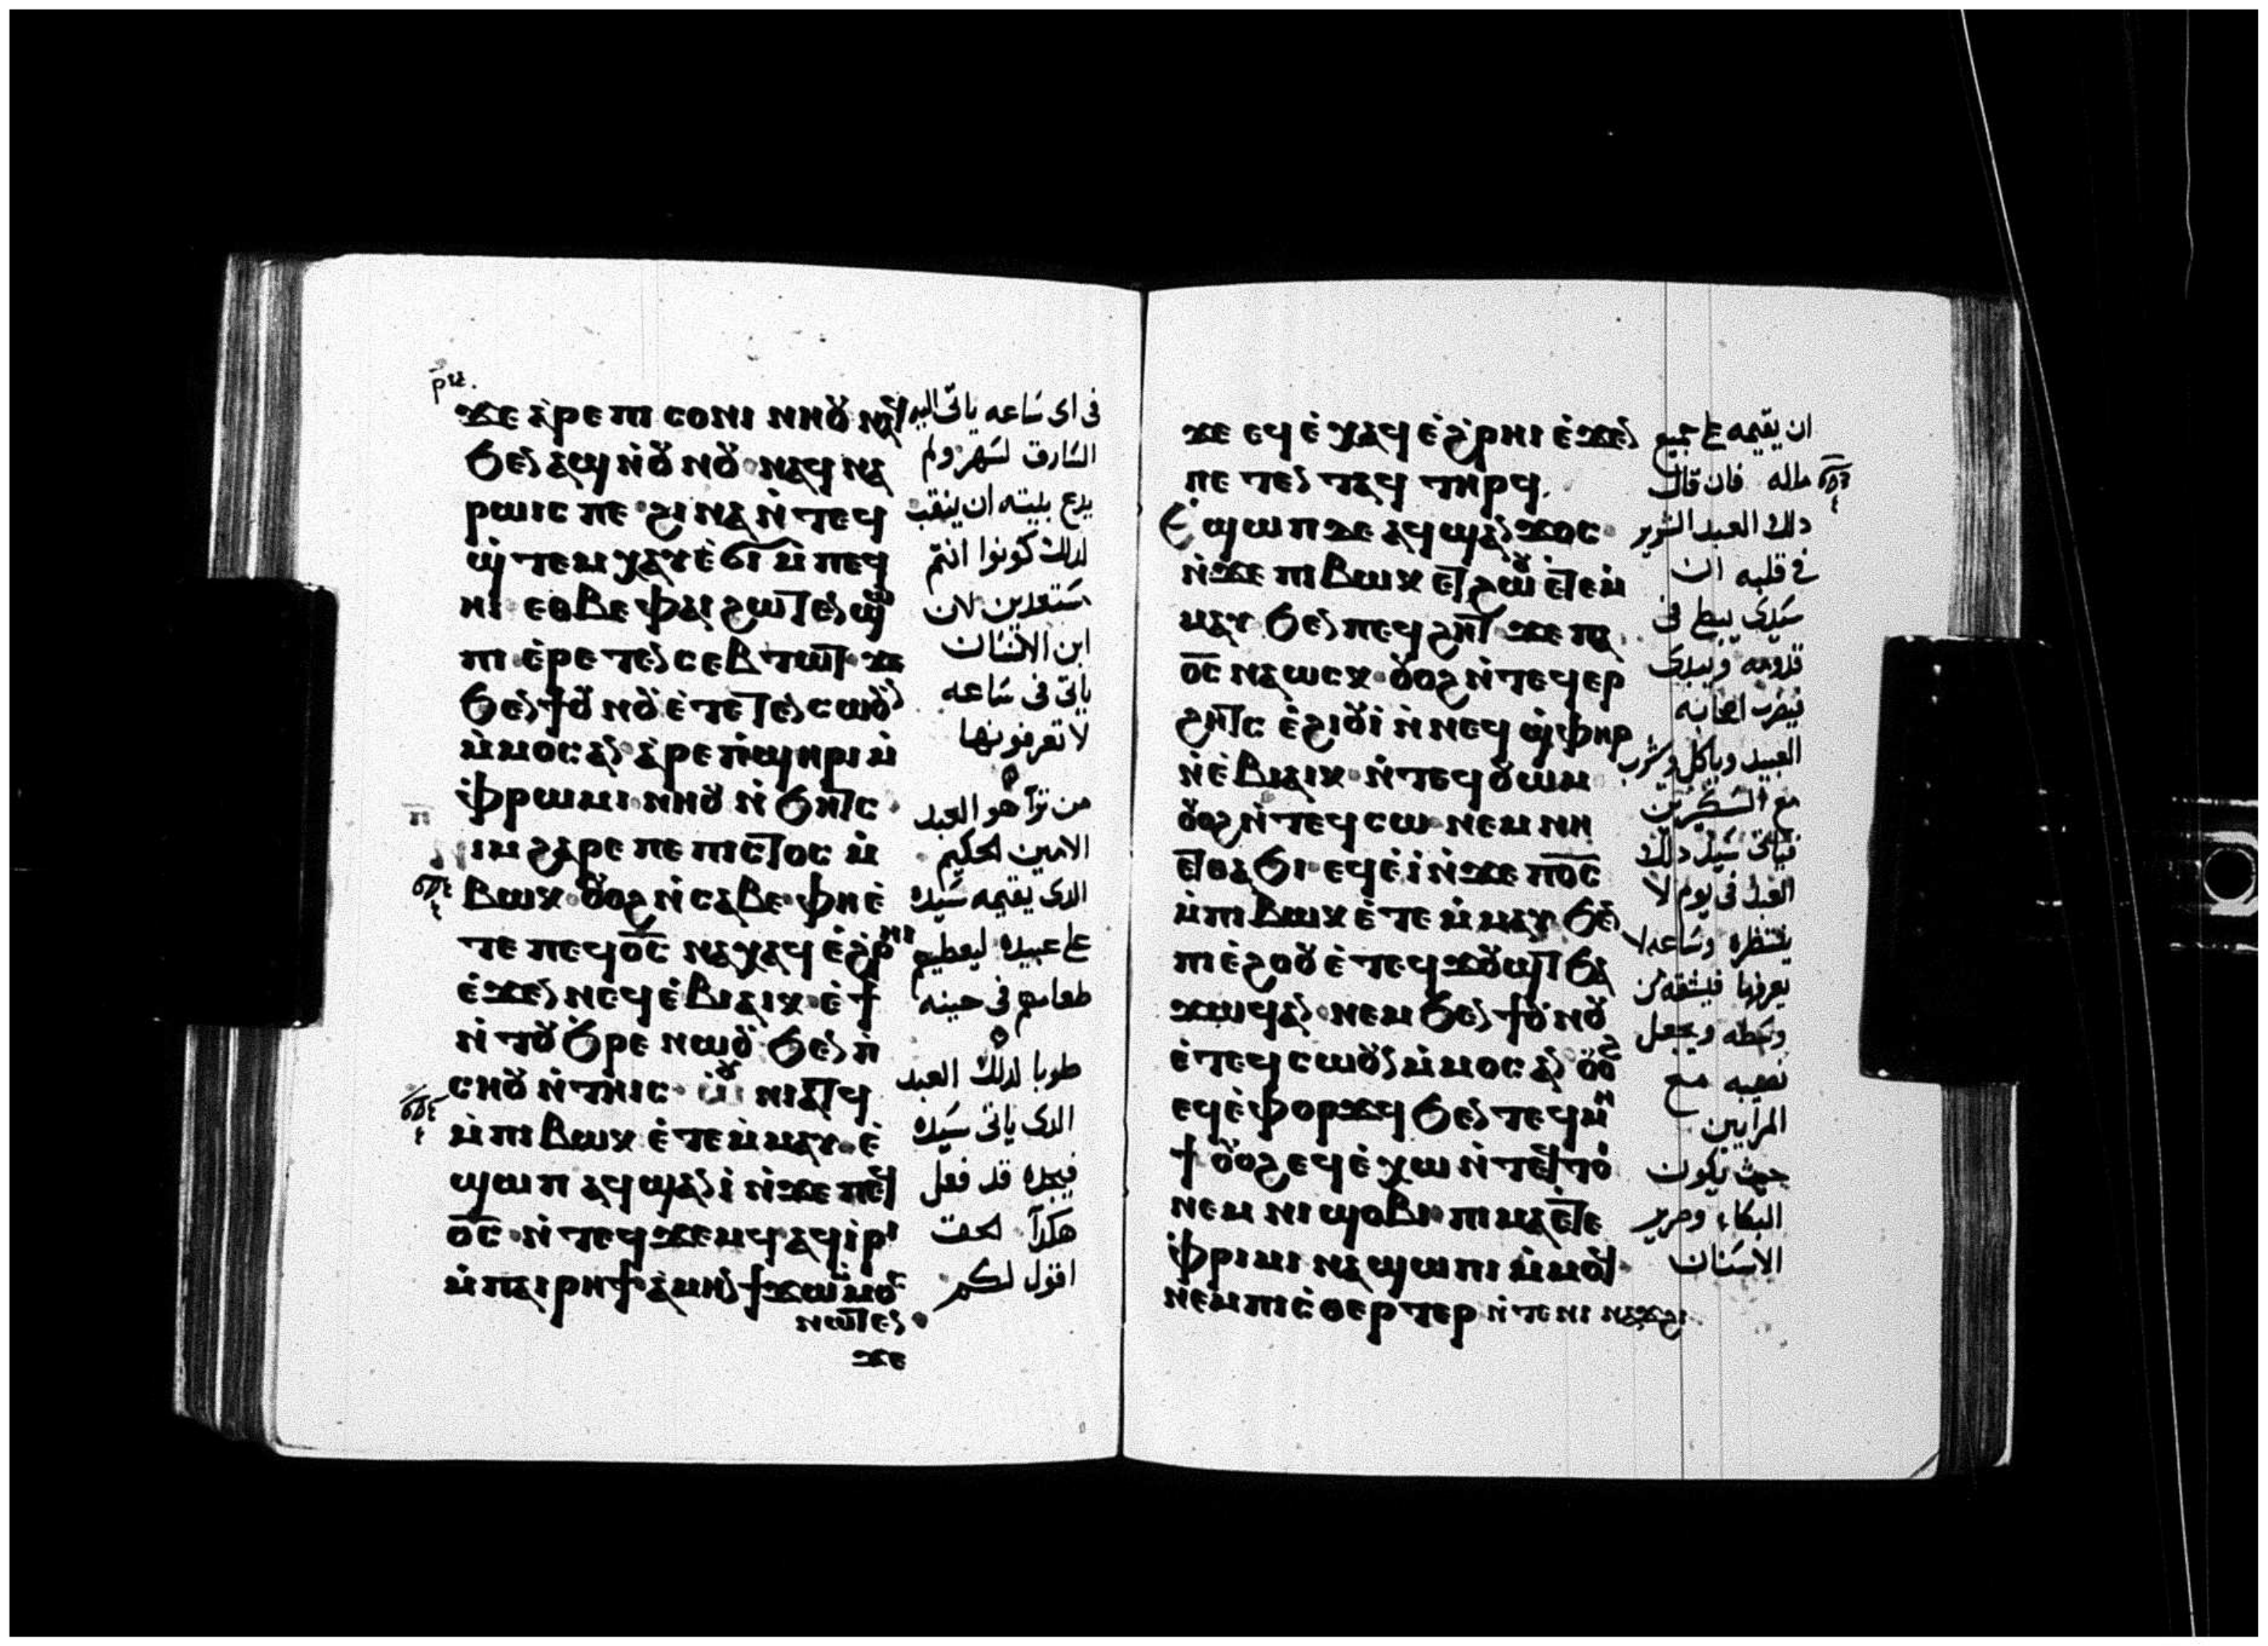 ϫⲉ ⲁ̀ⲣⲉ ⲡⲓ ⲥⲟⲛⲓ ⲛⲏⲟⲩ
ϧⲉⲛ ⲁϣ ⲛ̀ⲟⲩⲛⲟⲩ ⲛⲁϥ ⲛⲁ
ⲣⲱⲓⲥ ⲡⲉ ϩⲓⲛⲁ ⲛ̀ⲧⲉϥ
ϣ̀ⲧⲉⲙ ⲭⲁⲩ ⲉ̀ϭⲓ ⲙ̀ⲡⲉϥ
ⲏⲓ ⲉⲑⲃⲉ ⲫⲁⲓ ϩⲱⲧⲉⲛ ϣⲱ
ⲡⲓ ⲉ̀ⲣⲉⲧⲉⲛ ⲥⲉⲃⲧⲱⲧ ϫⲉ
ϧⲉⲛ ϯⲟⲩⲛⲟⲩ ⲉ̀ⲧⲉⲧⲉⲛ ⲥⲱⲟⲩⲛ
ⲙ̀ⲙⲟⲥ ⲁⲛ ⲁ̀ⲣⲉ ⲡ̀ϣⲏⲣⲓ ⲙ̀
ⲫ̀ⲣⲱⲙⲓ ⲛⲏⲟⲩ ⲛ̀ϧⲏⲧⲥ
ⲛⲓⲙ ϩⲁⲣⲉ ⲡⲉ ⲡⲓⲥⲧⲟⲥ ⲙ̀
ⲃⲱⲕ ⲟⲩⲟϩ ⲛ̀ⲥⲁⲃⲉ ⲫⲏ ⲉ̀
ⲧⲉ ⲡⲉϥⲟ̅ⲥ̅ ⲛⲁⲭⲁϥ ⲉ̀ϩⲣⲏⲓ
ⲉ̀ϫⲉⲛ ⲛⲉϥⲉ̀ⲃⲓⲁⲓⲕ ⲉ̀ϯ
ⲛ̀ⲧⲟⲩϧⲣⲉ ⲛⲱⲟⲩ ϧⲉⲛ ⲡ̀
ⲥⲏⲟⲩ ⲛ̀ⲧⲏⲓⲥ ⲱⲟⲩ ⲛⲓⲁⲧϥ
ⲙ̀ⲡⲓ ⲃⲱⲕ ⲉ̀ⲧⲉ ⲙ̀ⲙⲁⲩ ⲉ̀
ϣⲱⲡ ⲁϥϣⲁⲛ ⲓ̀ ⲛ̀ϫⲉ ⲡⲉϥ
ⲟ̅ⲥ̅ ⲛ̀ⲧⲉϥϫⲉⲙϥ ⲁϥⲓ̀ⲣⲓ
ⲙ̀ⲡⲁⲓⲣⲏϯ ⲁ̀ⲙⲏⲛ ϯϫⲱ ⲙ̀ⲙⲟⲥ
ⲛⲱⲧⲉⲛ
ϫⲉ
في اى ساعه ياتى اليه
السارق لسهر ولم
يدع بيته ان ينقب
لدلك كونوا انتم
مستعدين لان
ابن الانسان
ياتى في ساعه
لا تعرفونها
من ترآ هو العبد
الامين الحكيم
الدى يقيمه سيده
على عبيده ليعطيهم
طعامهم في حينه
طوبا لدلك العبد
الدى ياتى سيده
فيجده قد فعل
هكدآ الحق
اقول لكم
ϫⲉ ⲉϥⲉ̀ⲭⲁϥ ⲉ̀ϩ̀ⲣⲏⲓ ⲉ̀ϫⲉⲛ
ⲡⲉⲧⲉⲛⲧⲁϥ ⲧⲏⲣϥ
ⲉ̀ϣⲱⲡ ⲇⲉ ⲁϥϣⲁⲛ ϫⲟⲥ
ⲛ̀ϫⲉ ⲡⲓ ⲃⲱⲕ ⲉⲧϩⲱⲟⲩ ⲉ̀ⲧⲉⲙ̀
ⲙⲁⲩ ϧⲉⲛ ⲡⲉϥϩⲏⲧ ϫⲉ ⲡⲁ
ⲟ̅ⲥ̅ ⲛⲁⲱⲥⲕ ⲟⲩⲟϩ ⲛ̀ⲧⲉϥⲉⲣ
ϩⲏⲧⲥ ⲉ̀ϩⲓⲟⲩⲓ̀ ⲛ̀ⲛⲉϥ ϣ̀ⲫⲏⲣ
ⲛ̀ⲉ̀ⲃⲓⲁⲓⲕ ⲛ̀ⲧⲉϥⲟⲩⲱⲙ
ⲟⲩⲟϩ ⲛ̀ⲧⲉϥⲥⲱ ⲛⲉⲙ ⲛⲏ
ⲉⲧⲑⲁϧⲓ ⲉϥⲉ̀ⲓ̀ ⲛ̀ϫⲉ ⲡⲟ̅ⲥ̅
ⲙ̀ⲡⲓ ⲃⲱⲕ ⲉ̀ⲧⲉ ⲙ̀ⲙⲁⲩ ϧⲉⲛ
ⲡⲓⲉ̀ϩⲟⲟⲩ ⲉ̀ⲧⲉϥϫⲟⲩϣⲧ ϧⲁ
ϫⲱϥ ⲁⲛ ⲛⲉⲙ ϧⲉⲛ ϯⲟⲩⲛⲟⲩ
ⲉ̀ⲧⲉϥⲥⲱⲟⲩⲛ ⲙ̀ⲙⲟⲥ ⲁⲛ ⲟⲩⲟϩ
ⲉϥⲉ̀ⲫⲟⲣϫϥ ϧⲉⲛ ⲧⲉϥⲙⲏ
ϯ ⲟⲩⲟϩ ⲉϥⲉ̀ⲭⲱ ⲛ̀ⲧⲉϥⲧⲟⲓ
ⲛⲉⲙ ⲛⲓ ϣⲟⲃⲓ ⲡⲓⲙⲁ ⲉ̀ⲧⲉ
ⲫ̀ⲣⲓⲙⲓ ⲛⲁϣⲱⲡⲓ ⲙ̀ⲙⲟϥ
ⲛⲉⲙ ⲡⲓⲥ̀ⲑⲉⲣⲧⲉⲣ ⲛ̀ⲧⲉ ⲛⲓ ⲛⲁϫϩⲓ
ان يقيمه على جميع
ماله فان قال
دلك العبد الشرير
في قلبه ان
سيدى يبطى في
قدومه ويبدى
فيضرب اصحابه
العبيد وياكل ويشرب
مع السكرين
فياتى سيد دلك
العبد في يوم لا
ينتظره وساعه لا
يعرفها فيشقه من
وسطه ويجعل
نصيبه مع
المرايين
حيث يكون
البكاء وصرير
الاسنان